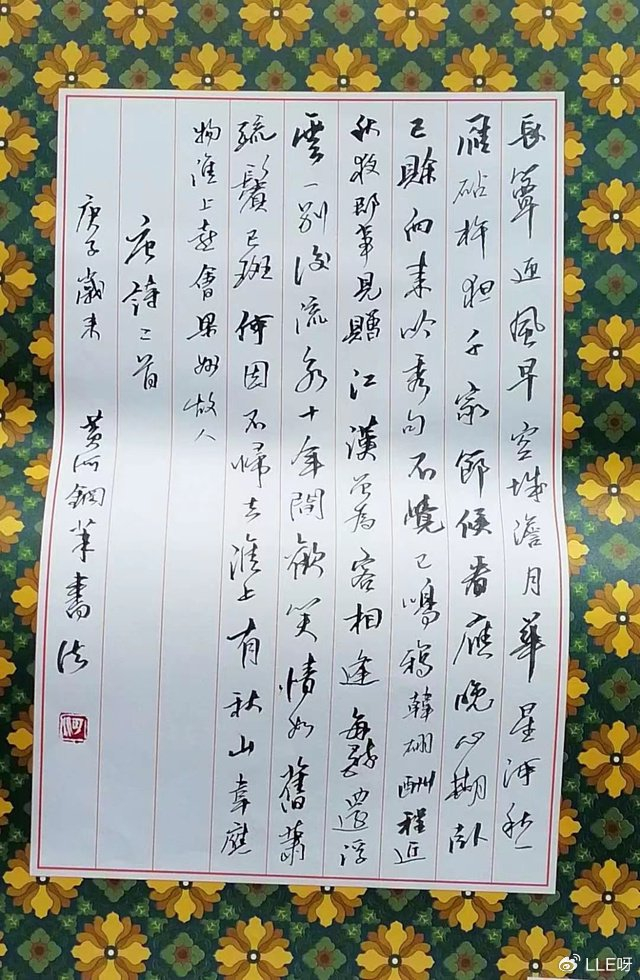 長簟迎風早空城澹月華星河秋一
雁砧杵夜千家節候看應晚心期卧
已賒向来吟秀句不覺已鳴鴉韓翃酬程近
秋夜即事見贈江漢曾為客相逢每醉還浮
雲一別後流水十年間歡笑情如舊蕭
疏鬢已斑何因不歸去淮上有秋山韋應
物淮上喜會梁州故人
唐詩二首
庚子歲末 黄河鋼筆書法
@LLE呀